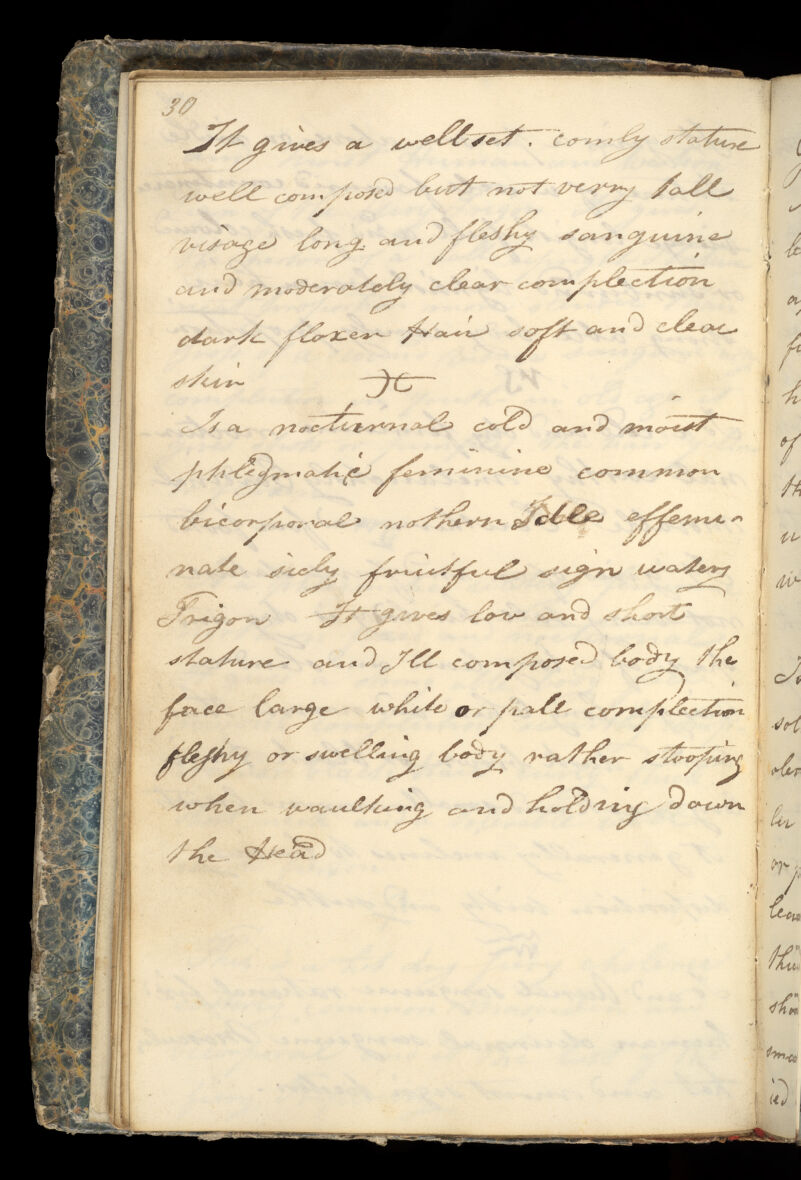 30
It gives a well set. comly stature
well composed but not verry tall
visage long and fleshy sanguine
and moderately clear complection
dark flaxen Hair soft and clear
skin
♓
Is a nocturnal cold and moist
phlegmatic feminine common
bicorporal nothern Idle effemi-
nate sicly fruitful sign watery
Trigon It gives low and short
stature and Ill composed body the
face large white or pall complection
fleshy or swelling body rather stooping
when waulking and holding down
the Head